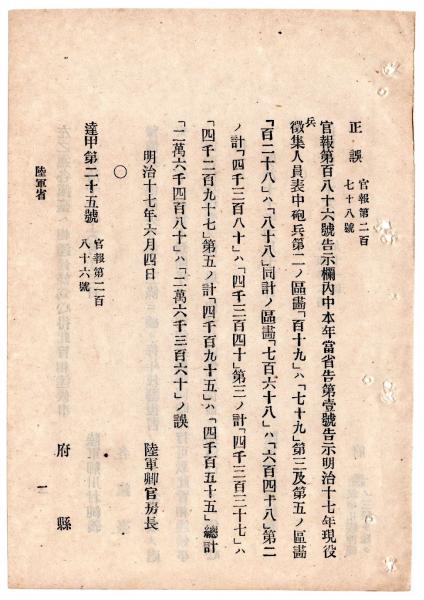 正誤 官報第二百七十八號
官報第百八十六號告示欄內中本年當省告第壹號告示明治十七年現役兵
徵集人員表中砲兵第二ノ區畵「百十九」ハ「七十九」第三及第五ノ區畵
「百二十八」ハ「八十八」同計ノ區畵「七百六十八」ハ「六百四十八」第二
ノ計「四千三百八十」ハ「四千三百四十」第三ノ計「四千三百三十七」ハ
「四千二百九十七」第五ノ計「四千百九十五」ハ「四千百五十五」總計
「二萬六千四百八十」ハ「二萬六千三百六十」ノ誤
明治十七年六月四日 陸軍卿官房長
○
達甲第二十五號 官報第二百八十六號
府縣
陸軍省
一